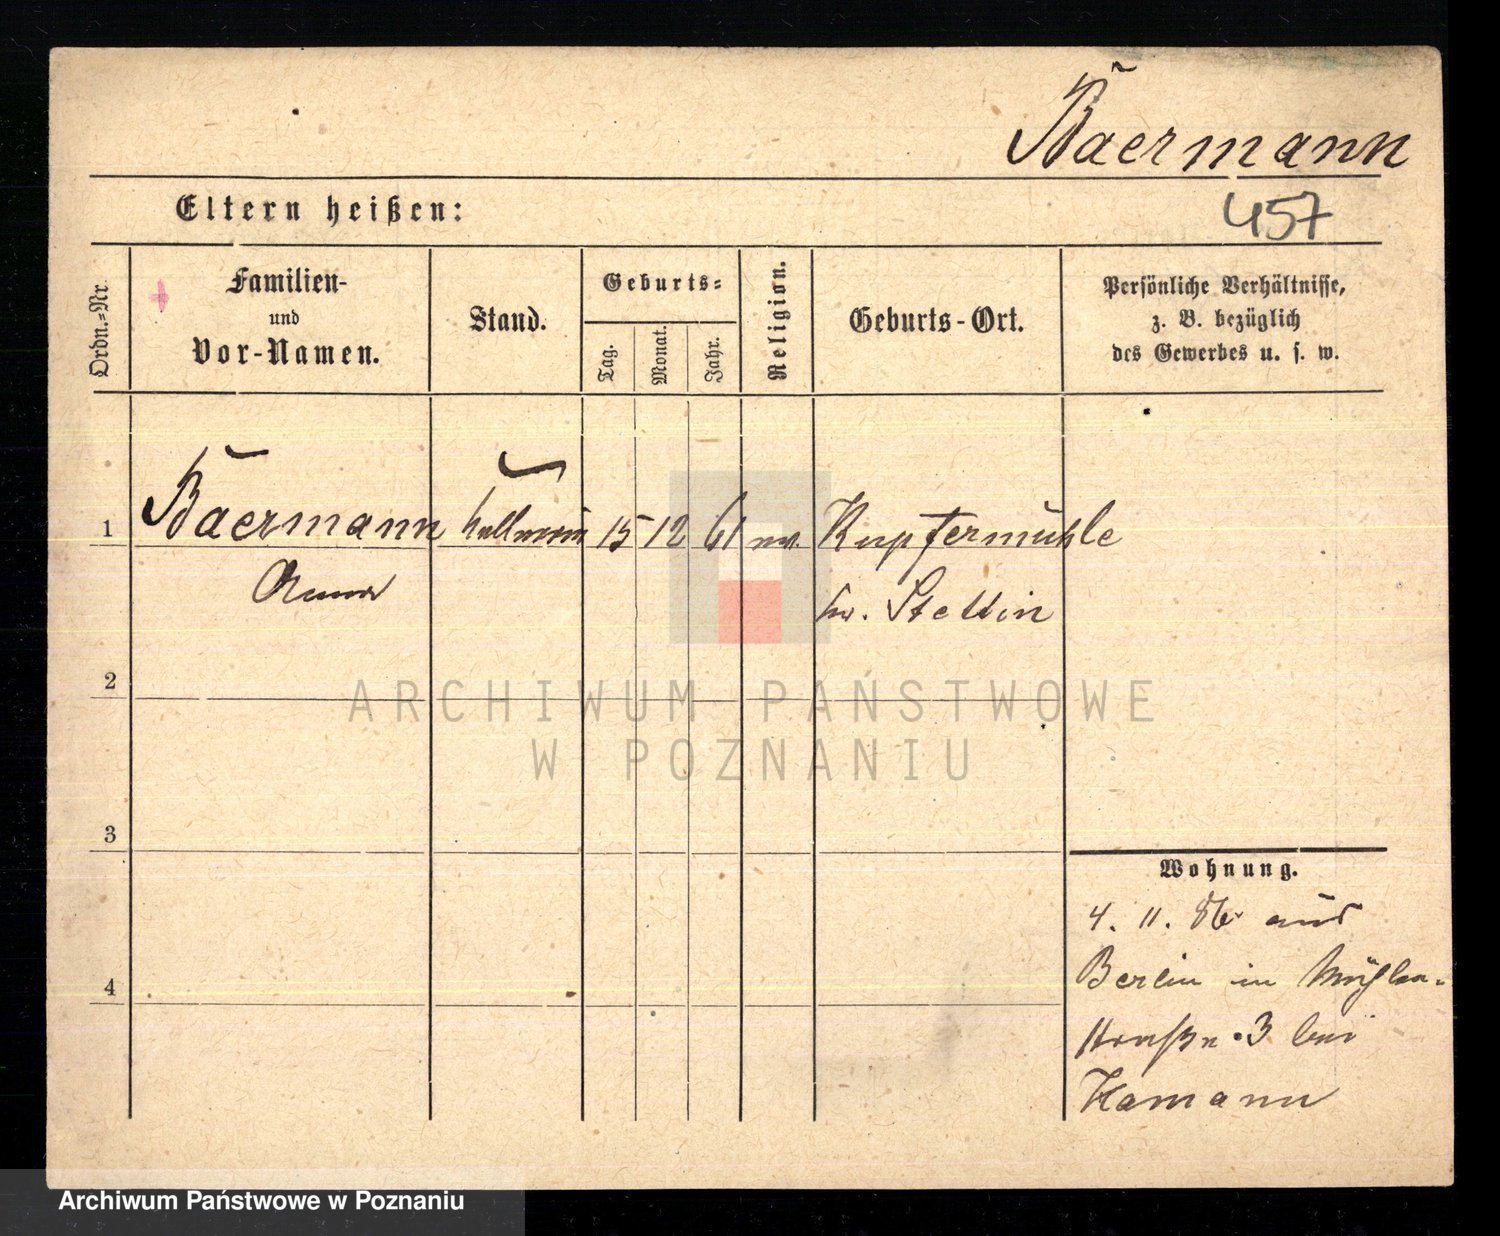 Baermann
457
Eltern heißen:
Ordn.-Nr.
Familien-
und
Vor-Namen.
Stand.
Geburts-
Tag.
Monat.
Jahr.
Religion.
Geburts-Ort.
Persönliche Verhältnisse,
z. B. bezüglich
des Gewerbes u. s. w.
1 Baermann 15 12 61 Kupfermühle
Stettin
2
ARCHIWUM PAŃSTWOWE
W POZNANIU
3
Wohnung.
4. 11. 86 aus
Berlin in Mühlen-
straße 3 bei
Hamann
4
Archiwum Państwowe w Poznaniu